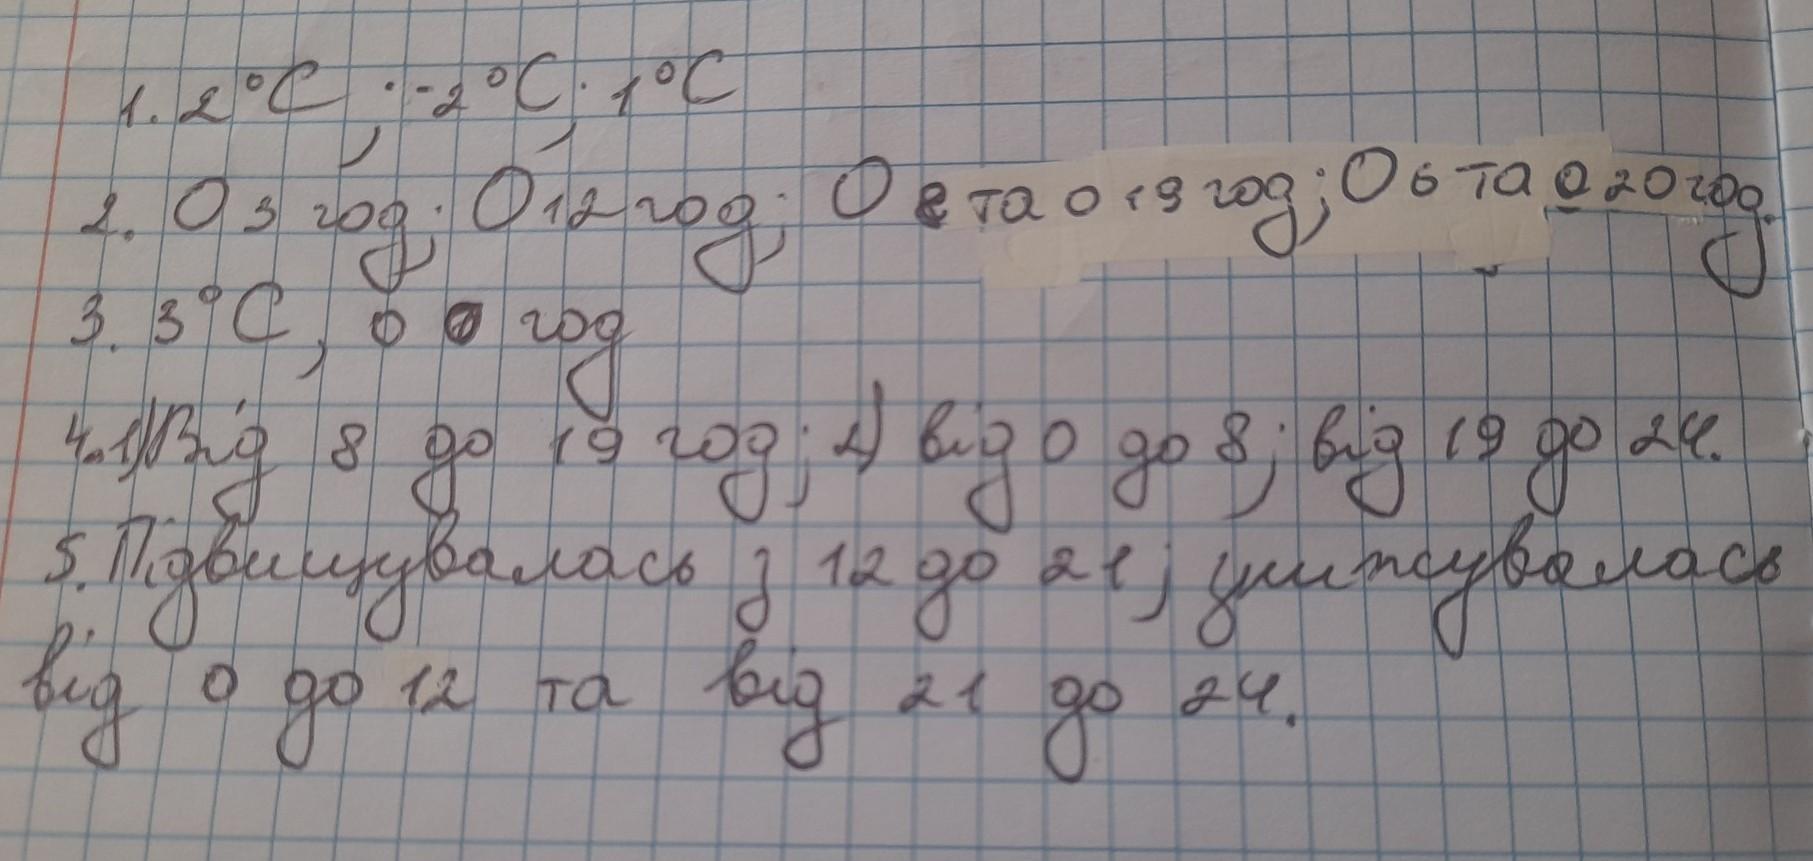 1. 2°C; -2°C; 1°C
2. О 3 год; О 12 год; О 8 та о 19 год; О 6 та о 20 год.
3. 3°C, о 0 год
4. 1) Від 8 до 19 год; 2) від 0 до 8; від 19 до 24.
5. Підвищувалась з 12 до 21; унижувалась
від 0 до 12 та від 21 до 24.